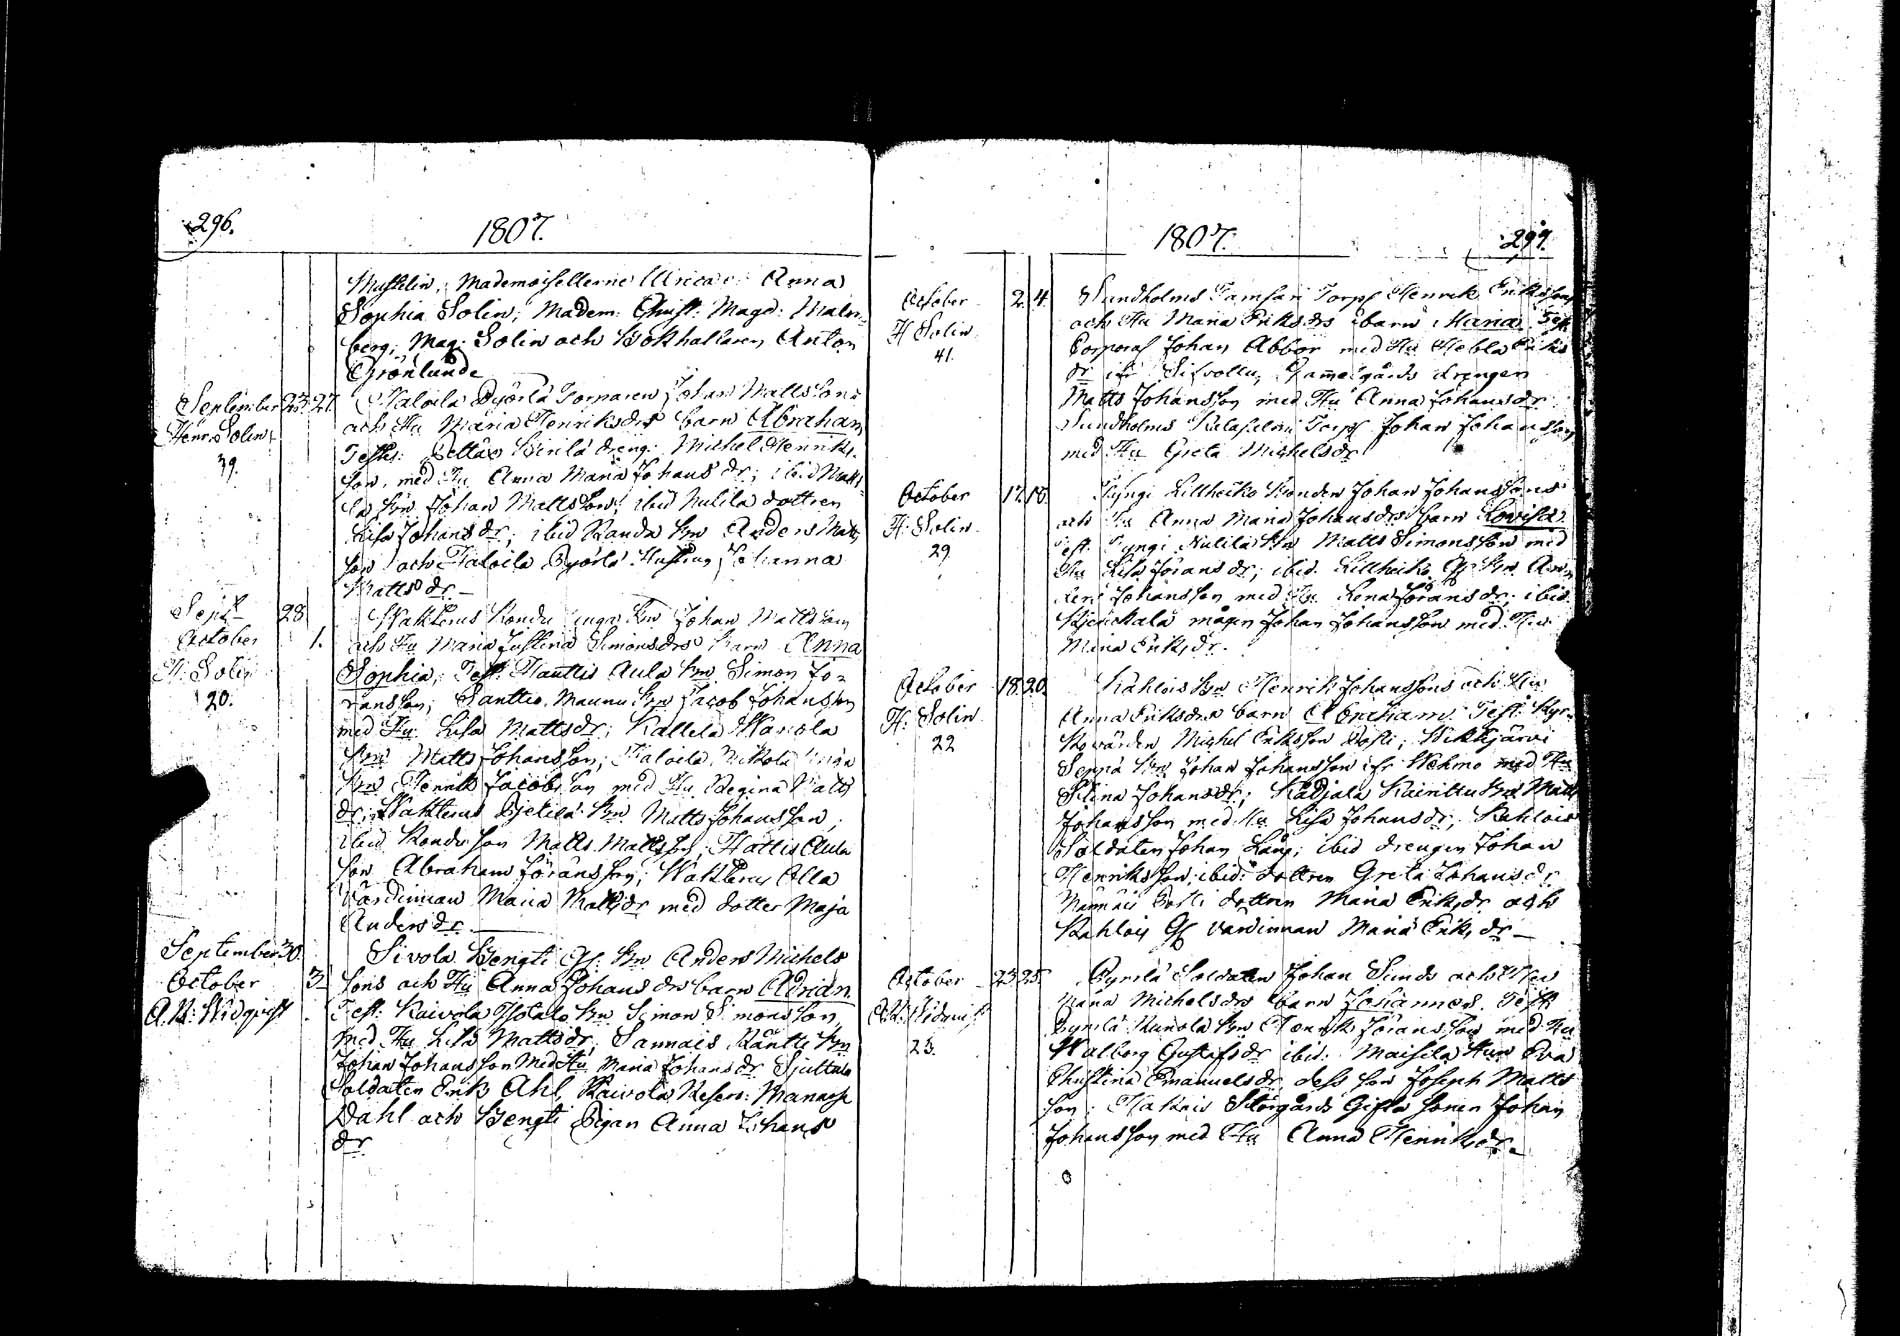 296.
1807.
Musselin, Mademoisellerne Ulrica och Anna
Sophia Solin, Madem: Christ: Magd: Malm-
berg; Mag: Solin och Bokhallaren Anton
Grönlunde
September 25. 27.
Henr: Solin
39.
Taloila Björlä Tornaren Johan Mattssons
och Hu Maria Henriksdrs barn Abraham
Testes: Heikilä dreng: Michel Henriks-
son, med Hu Anna Maria Johans dr; ibid
son Johan Mattsson; ibid Nulila dottren
Lisa Johans dr; ibid Randa Bn Anders Matts
son och Taloila Björlä Hustrun Johanna
Matts dr.
Sept 28
October 1.
H: Solin
20.
Wakterus Kondu Bn Johan Mattsson
och Hu Maria Justina Simonsdrs barn Anna
Sophia, Test: Hautlis Aula Bn Simon Jö-
ransson; Santtio Maunu Bn Jacob Johansson
med Hu Lisa Mattsdr; Kallela Wanola
Bn Matts Johansson; Taloila
Bn Henrik Jacobsson med Hu Regina Matts
dr; Wakterus Bn Matts Johansson,
ibid Kondu son Matts Mattsson; Hattis Aula
son Abraham Jöransson; Wakterus Olla
Värdinnan Maria Mattsdr med dotter Maja
Andersdr
September 30.
October 3.
A. R: Widqvist
Sivola Bengti Gf. Bn Anders Michels
sons och Hu Anna Johans drs barn Adrian.
Test: Kaivola Isotalo Bn Simon Simonsson
med Hu Lisa Mattsdr; Sannais Räntti Bn
Johan Johansson med Hu Maria Johans dr
Soldaten Erik Ahl, Kaivola Reserv: Manasse
Dahl och Bengti Pigan Anna Johans
dr
1807.
297.
October 2. 4.
H Solin
41.
Sundholms Tamsari Torp: Henrik Eriksson
och Hu Maria Eriksdrs barn Maria. Test.
Corporal Johan Abbor med Hu Hebla Eriks
dr Gammelgårds drengen
Matts Johansson med Hu Anna Johansdr
Sundholms Torp Johan Johansson
med Hu Greta Michelsdr
October 17. 18.
H: Solin
29
Tyngi Lillheiko Bonden Johan Johanssons
och Hu Anna Maria Johansdrs barn Lovisa.
Test. Tyngi Nulila Bn Matts Simonsson med
Hu Lisa Jörans dr; ibid. Lillheiko Gf Bn
Johansson med Hu Lena Jöransdr; ibid.
mågen Johan Johansson med Hu
Maria Eriksdr.
October 18. 20.
H: Solin
22
Kahlois Bn Henrik Johanssons och Hu
Anna Eriksdrs barn Abraham. Test. Kyr-
kovärden Michel Eriksson Posti; Wikkjärvi
Seppä Bn Johan Johansson ifr Wehmo med Hu
Stina Johansdr; Kadjala Kainittu Bn Matts
Johansson med Hu Lisa Johansdr; Kahlois
Soldaten Johan Lång; ibid drengen Johan
Henriksson; ibid: dottren Greta Johansdr.
Männäis Posti dottren Maria Eriksdr och
Kahlois Gf värdinnan Maria Eriksdr
October 23. 25.
A. R: Widqvist
25.
Pyrilä Soldaten Johan Sunds och Hu
Maria Michelsdrs barn Johannes. Test.
Pyrilä Kunola Bn Henrik Jöransson med Hu
Walborg Gustafsdr ibid: Maisila Hun Eva
Christina Emanuelsdr dess son Joseph Matts
son; Storgårds Gifta sonen Johan
Johansson med Hu Anna Henriksdr.